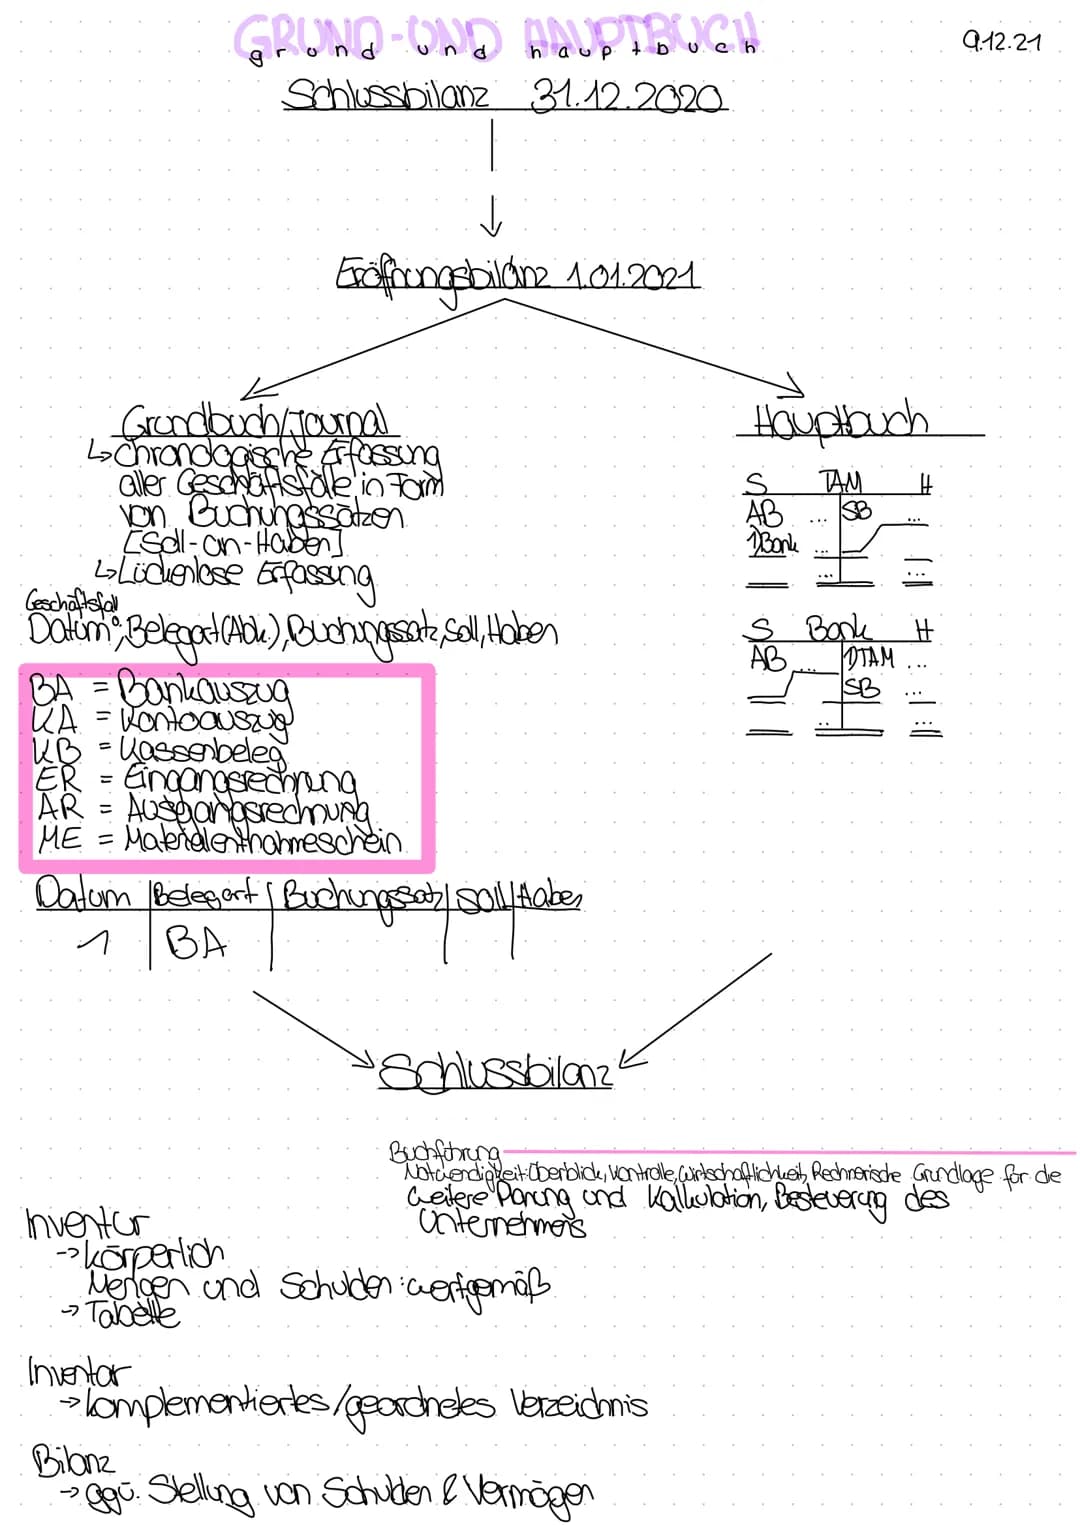 GRUND-UND HAUPTBUCH
grund und hauptbuch
9.12.21
Schlussbilanz 31.12.2020
Eröffnungsbilanz 1.01.2021
Grundbuch/Journal
↳Chronologische Erfassung
aller Geschäftsfälle in Form
von Buchungssätzen
[Soll-an-Haben]
↳Lückenlose Erfassung
Geschäftsfall
Datum, Belegart(Abk.), Buchungssatz, Soll, Haben
BA = Bankauszug
KA = Kontoauszug
KB = Kassenbeleg
ER = Eingangsrechnung
AR = Ausgangsrechnung
ME = Materialentnahmeschein
Datum | Belegart | Buchungssatz | Soll | Haben
1 | BA
Hauptbuch
S TAM H
AB ... SB ...
1)Bank ...
... ...
S Bank H
AB ... 1)TAM ...
SB ...
... ...
Schlussbilanz
Buchführung
Notwendigkeit: Überblick, Kontrolle, Wirtschaftlichkeit, Rechnerische Grundlage für die
weitere Planung und Kalkulation, Besteuerung des
Unternehmens
Inventur
-> körperlich
Mengen und Schulden: wertgemäß
-> Tabelle
Inventar
-> komplementiertes/geordnetes Verzeichnis
Bilanz
-> ggü. Stellung von Schulden & Vermögen